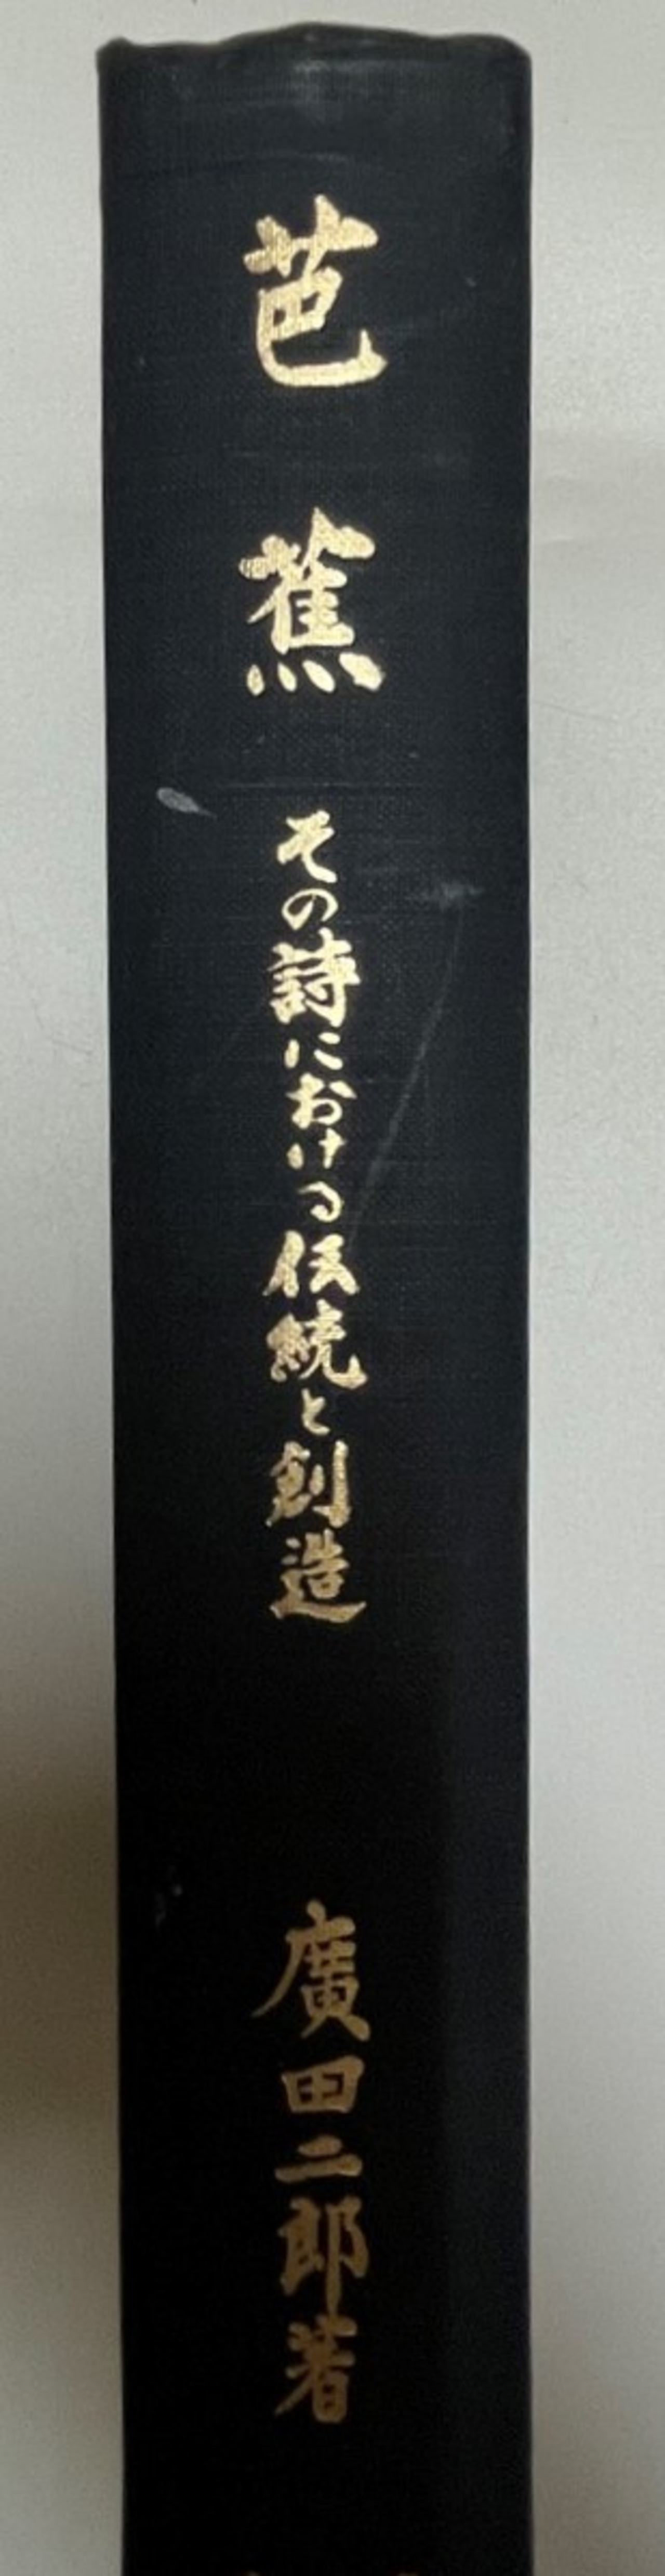 芭蕉
その詩における伝統と創造
廣田二郎著